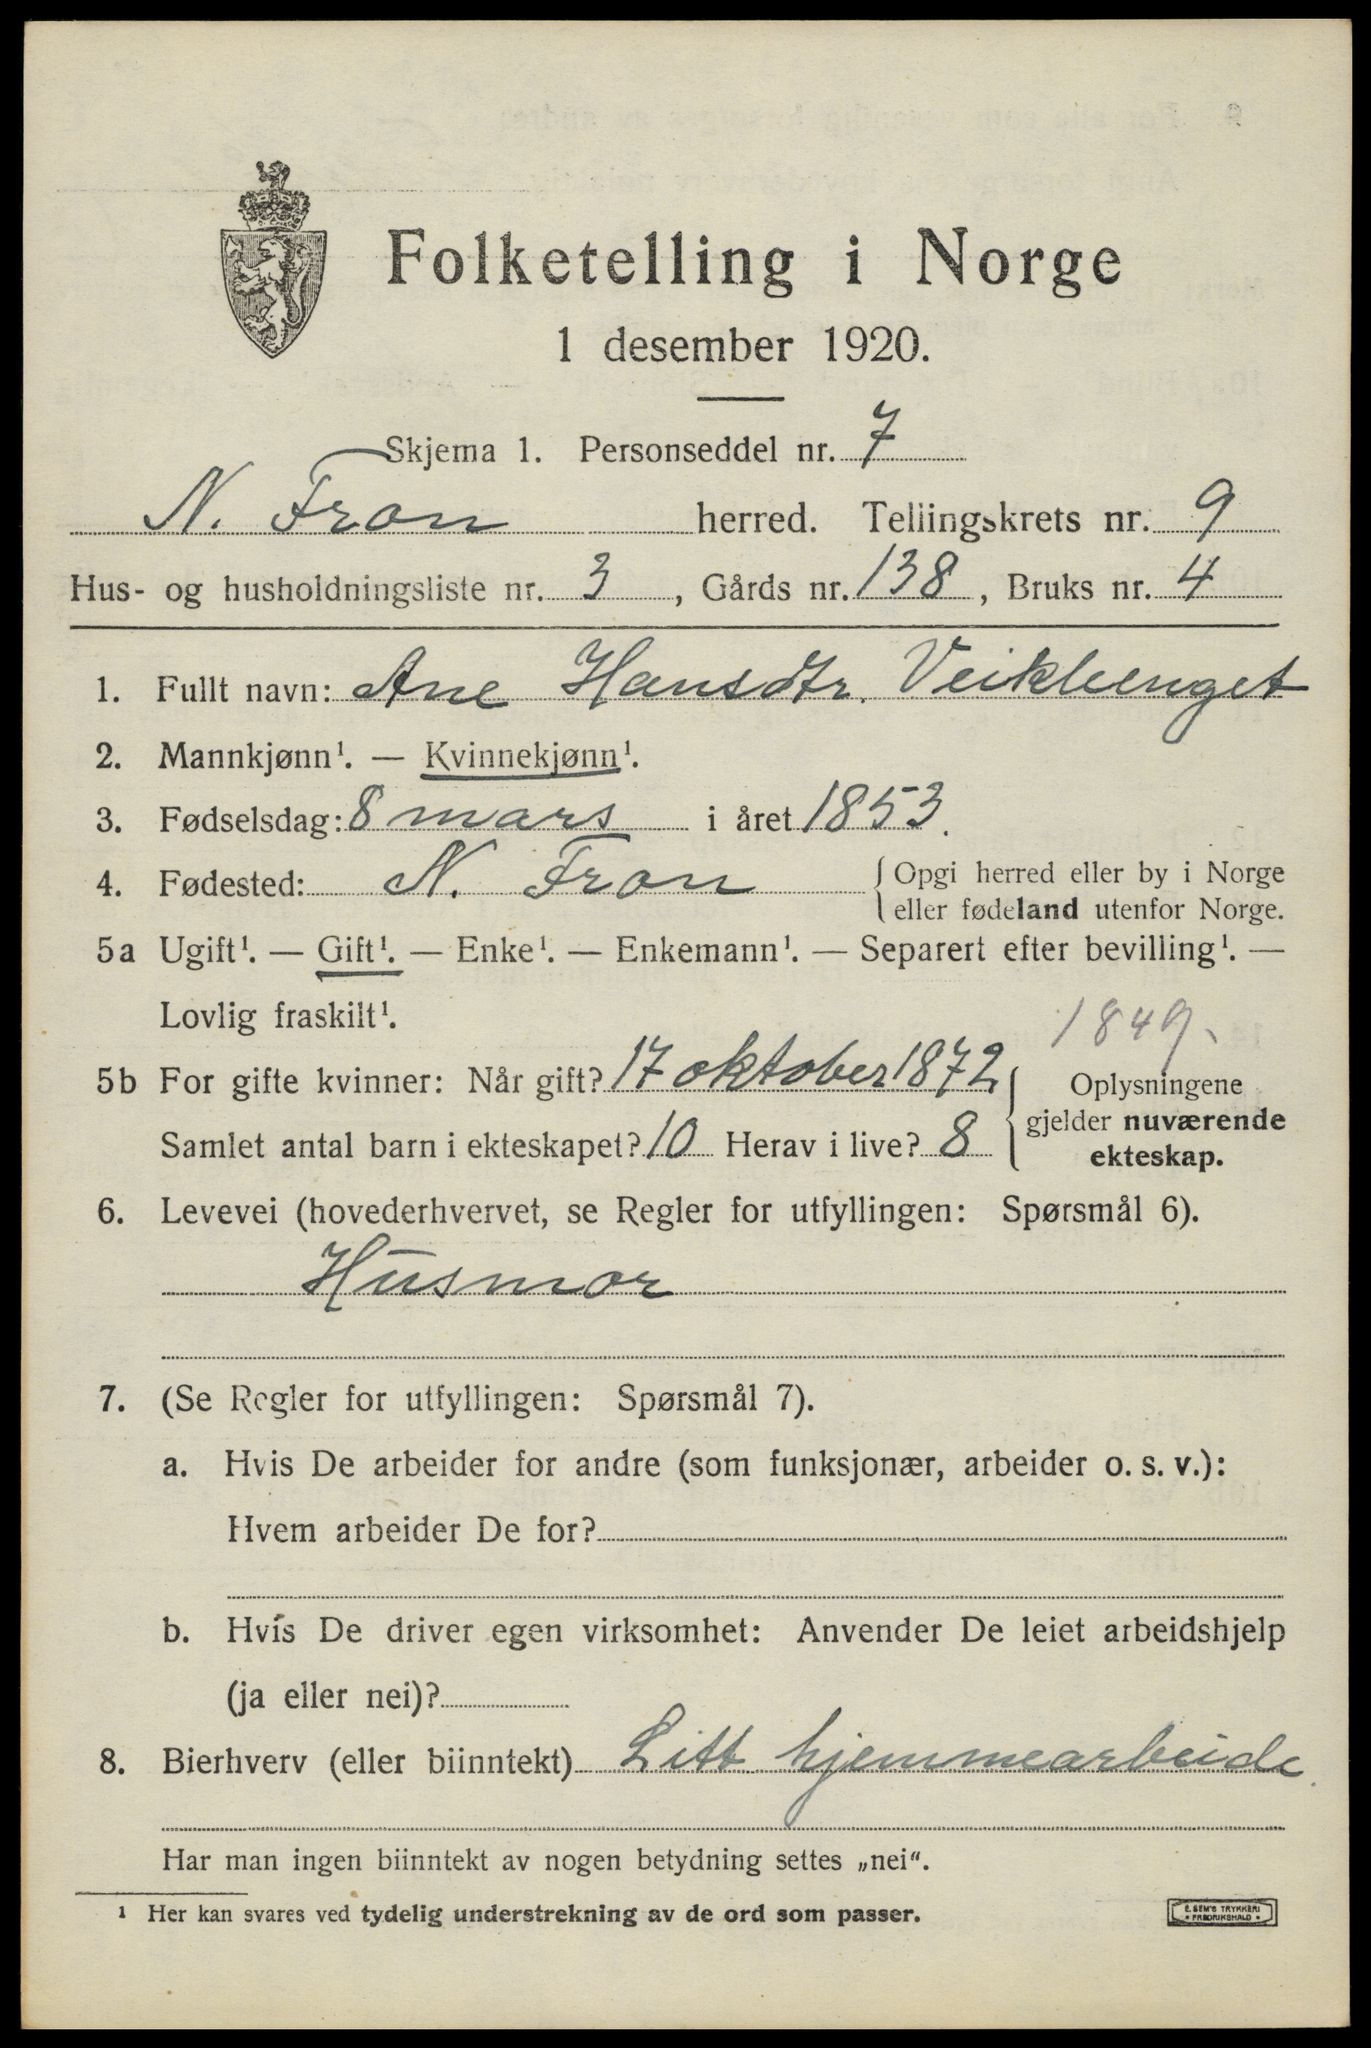 Folketelling i Norge
1 desember 1920.
Skjema 1. Personseddel nr. 7
N. Fron herred. Tellingskrets nr. 9
Hus- og husholdningsliste nr. 3, Gårds nr. 138, Bruks nr. 4
1. Fullt navn: Ane Hansdtr. Veiklienget
2. Mannkjønn¹. — Kvinnekjønn¹.
3. Fødselsdag: 8 mars i året 1853.
4. Fødested: N. Fron { Opgi herred eller by i Norge
eller fødeland utenfor Norge.
5a Ugift¹. — Gift¹. — Enke¹. — Enkemann¹. — Separert efter bevilling¹. —
Lovlig fraskilt¹.
1849.
5b For gifte kvinner: Når gift? 17 oktober 1872 { Oplysningene
gjelder nuværende
Samlet antal barn i ekteskapet? 10 Herav i live? 8
ekteskap.
6. Levevei (hovederhvervet, se Regler for utfyllingen: Spørsmål 6).
Husmor
7. (Se Regler for utfyllingen: Spørsmål 7).
a. Hvis De arbeider for andre (som funksjonær, arbeider o. s. v.):
Hvem arbeider De for?
b. Hvis De driver egen virksomhet: Anvender De leiet arbeidshjelp
(ja eller nei)?
8. Bierhverv (eller biinntekt) Litt hjemmearbeide.
Har man ingen biinntekt av nogen betydning settes „nei“.
¹ Her kan svares ved tydelig understrekning av de ord som passer.
E. SEM'S TRYKKERI
• FREDRIKSHALD •